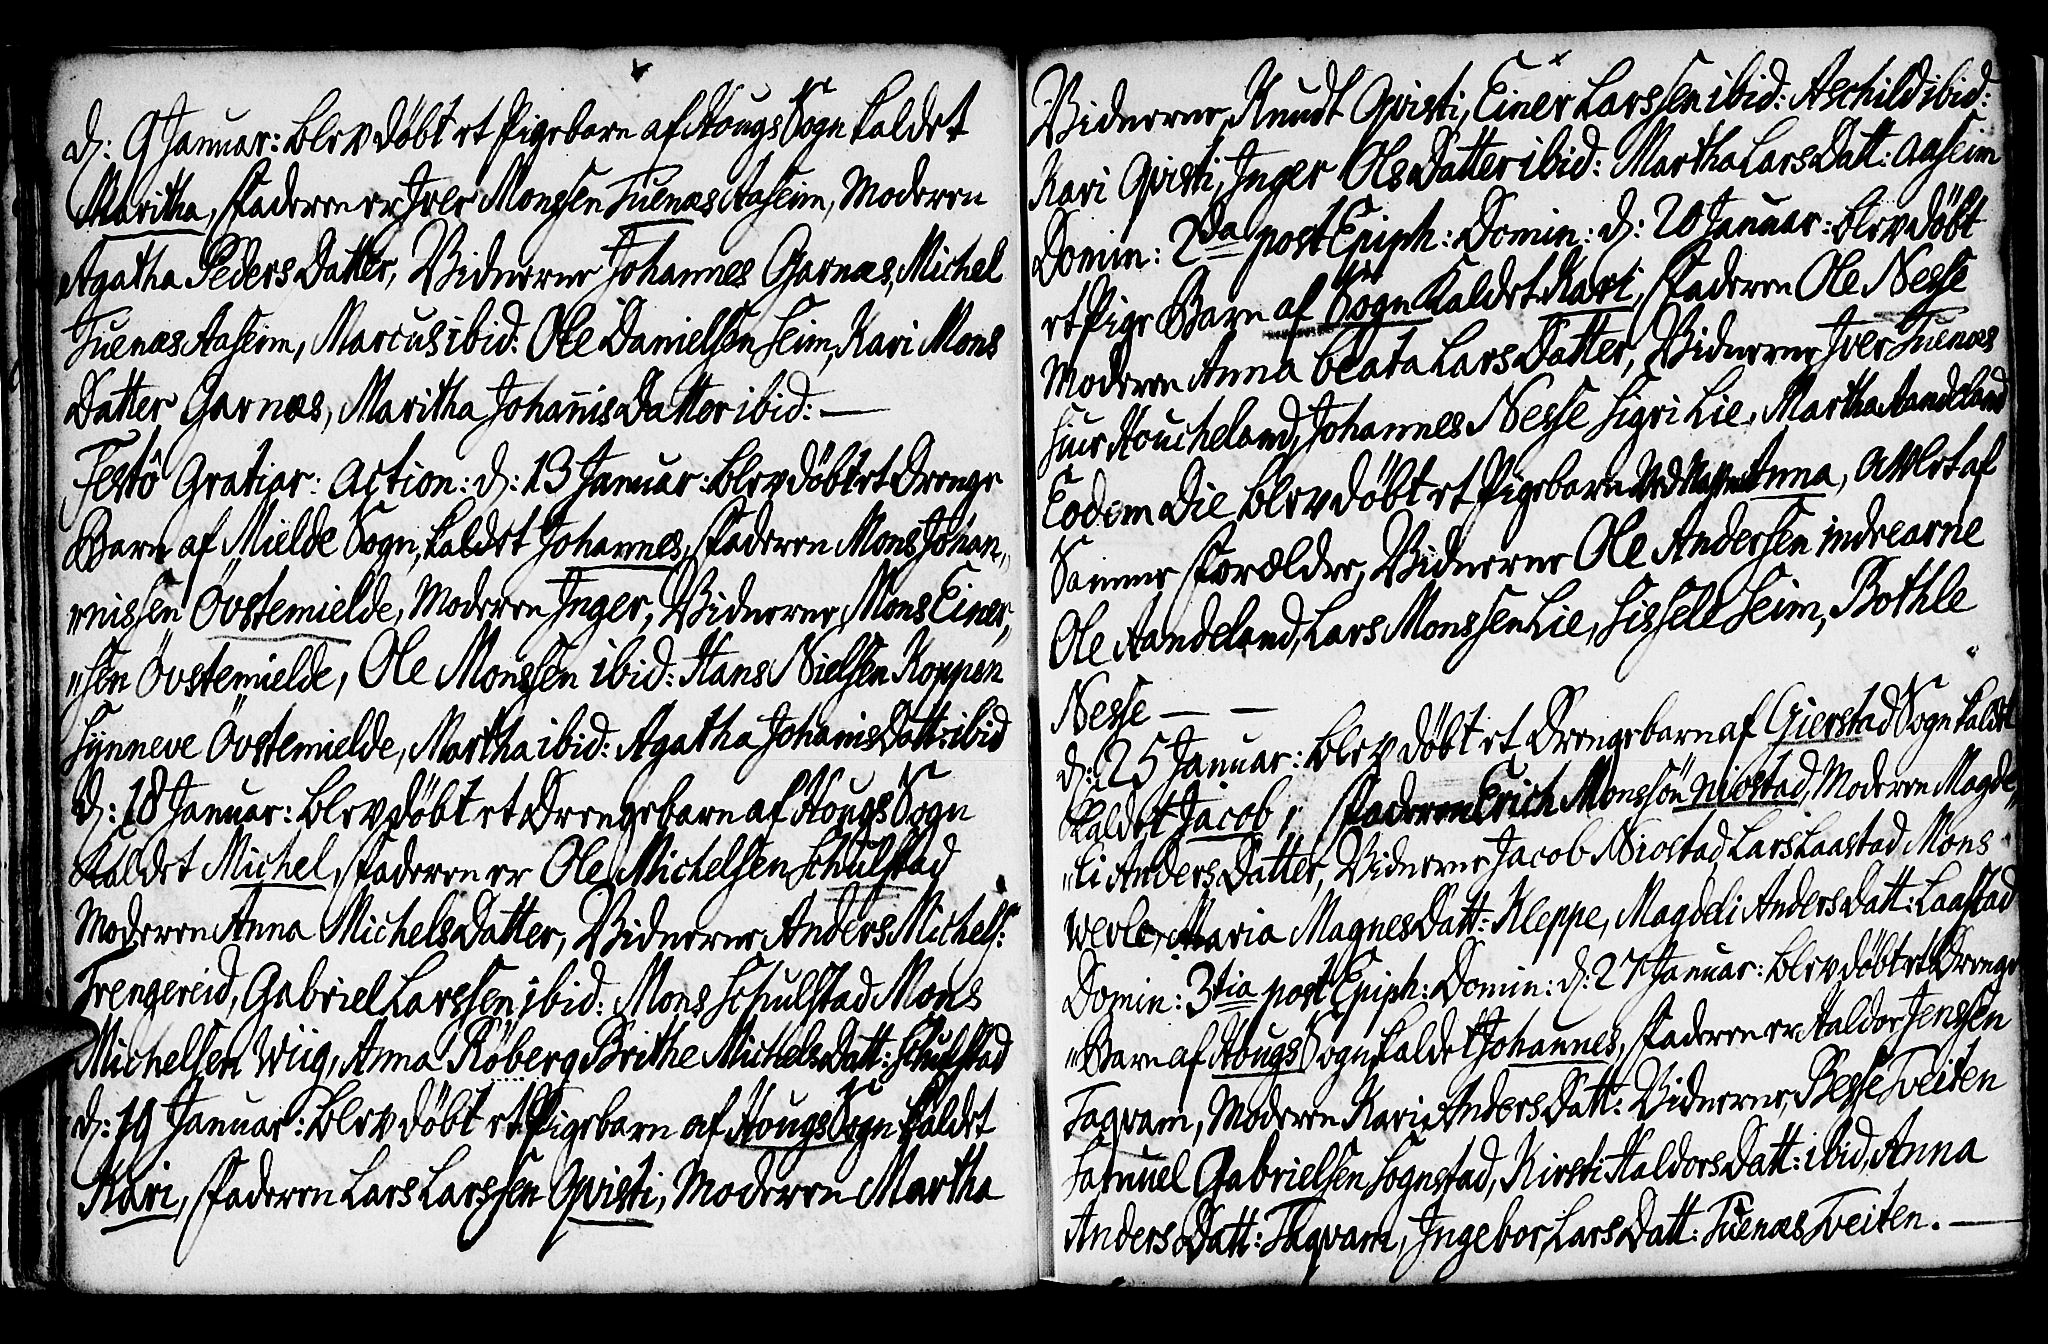 d: 9 Januar: blev døbt et Pigebarn af Hougs Sogn kaldet
Maritha, Faderen er Iver Monssen Tuenæs Aaseim, Moderen
Agatha Peders Datter, Vidnerne Johannes Garnæs, Michel
Tuenæs Aaseim, Marcus ibid: Ole Danielsen Seim, Kari Mons
Datter Garnæs, Maritha Johanis Datter ibid: —
Festô Gratiar: Action: d: 13 Januar: blev døbt et Drenge
Barn af Mielde Sogn, kaldet Johannes, Faderen Mons Johan„
„nissen Övstemielde, Moderen Inger, Vidnerne Mons Einer„
„sen Övstemielde, Ole Monssen ibid: Hans Nielsen Koppen
Synneve Övstemielde, Martha ibid: Agatha Johanis Datt: ibid
d: 18 Januar: blev døbt et Drengebarn af Hougs Sogn
Kaldet Michel, Faderen er Ole Michelsen Schulstad
Moderen Anna Michels Datter, Vidnerne Anders Michels:
Trengereid, Gabriel Larssen ibid: Mons Schulstad Mons
Michelsen Wiig, Anna Röberg Brithe Michels Datt: Schulstad
d: 19 Januar: blev døbt et Pigebarn af Hougs Sogn kaldet
Kari, Faderen Lars Larssen Qvisti, Moderen Martha
Vidnerne, Knudt Qvisti, Einer Larssen ibid: Aschild ibid:
Kari Qvisti, Inger Ols Datter ibid: Martha Lars Datt: Aaseim
Domin: 2da post Epiph: Domin: d: 20 Januar: blev døbt
et Pige Barn af Sogn Kaldet Kari, Faderen Ole Nesse
Moderen Anna beata Lars Datter, Vidnerne Iver Tuenæs
Siur Houcheland, Johannes Nesse Sigri Lie, Martha Aandeland
Eodem Die blev døbt et Pigebarn ved Nafn Anna, avlet af
Samme Forældre, Vidnerne Ole Andersen indrearne
Ole Aandeland, Lars Monssen Lie, Sissele Seim, Bothle
Nesse — —
d: 25 Januar: blev døbt et Drengebarn af Gierstad Sogn kaldet
Kaldet Jacob, Faderen Erich Monssön Niostad, Moderen Magde„
„li Anders Datter, Vidnerne Jacob Niostad Lars Laastad Mons
Werle, Maria Magnes Datt: Kleppe, Magdeli Anders Datt: Laastad
Domin: 3tia post Epiph: Domin: d: 27 Januar: blev døbt et Drenge
„Barn af Hougs Sogn kaldet Johannes, Faderen er Haldor Jenssen
Faqvam, Moderen Kari Anders Datt: Vidnerne, Besse Tveiten
Samuel Gabrielsen Sognstad, Kirsti Haldors Datt: ibid, Anna
Anders Datt: Faqvam, Ingebor Lars Datt: Tuenæs Tveiten. —